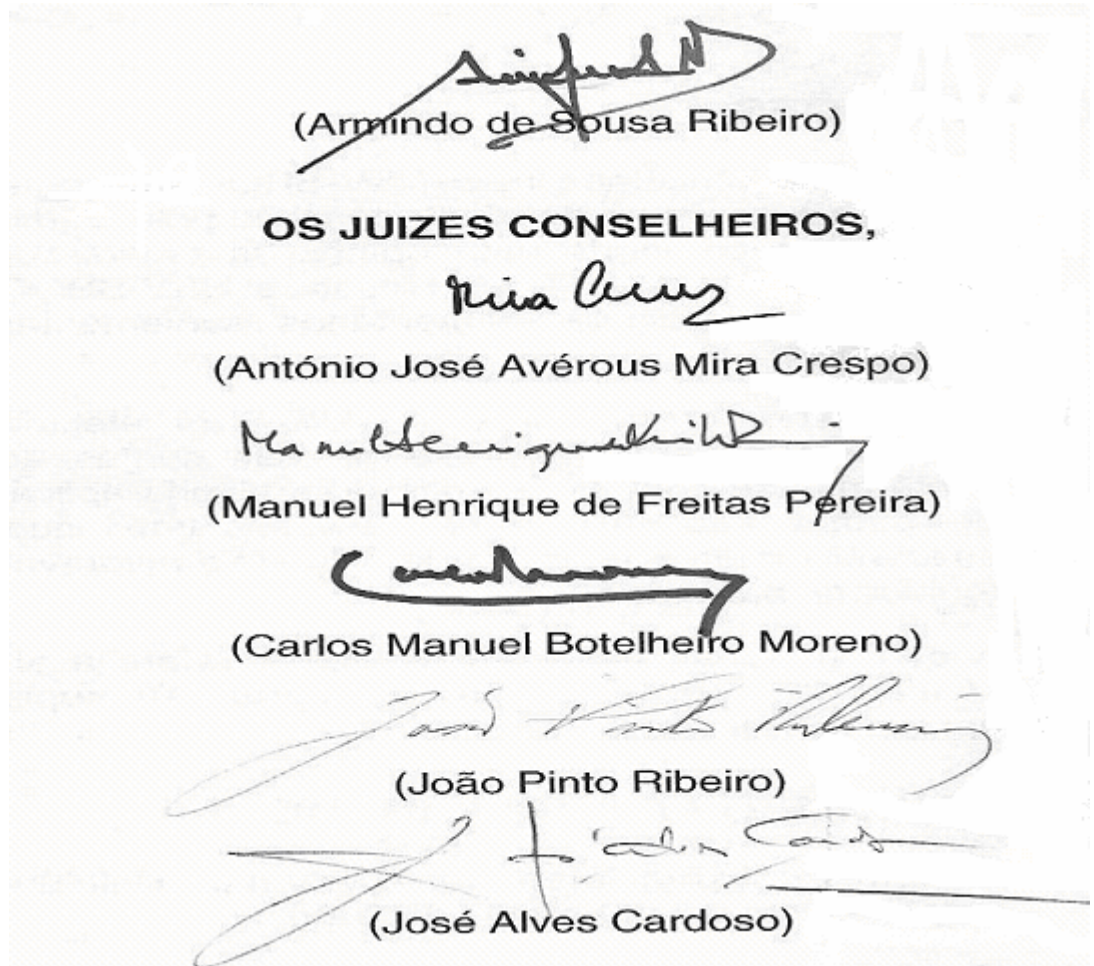 (Armindo de Sousa Ribeiro)
OS JUIZES CONSELHEIROS,
Mira
(António José Avérous Mira Crespo)
(Manuel Henrique de Freitas Pereira)
(Carlos Manuel Botelheiro Moreno)
João Pinto Ribeiro
(João Pinto Ribeiro)
(José Alves Cardoso)